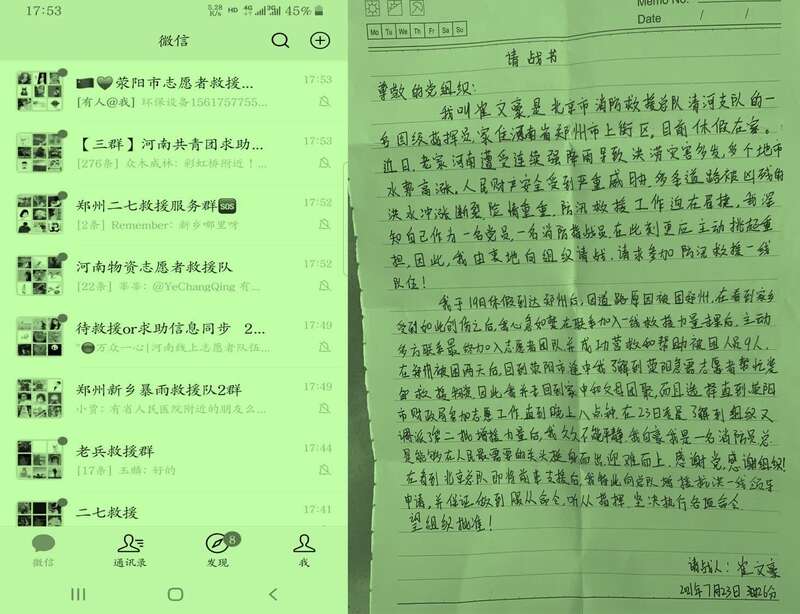 17:53
5.28
K/s
HD
4G
4G
45%
微信
荥阳市志愿者救援...
17:53
[有人@我] 环保设备1561757755...
【三群】河南共青团求助...
17:53
[276条] 众木成林：彩虹桥附近！...
郑州二七救援服务群SOS
17:52
[2条] Remember：新乡哪里呀
河南物资志愿者救援队
17:52
[22条] 峯峯：@YeChangQing 有...
待救援or求助信息同步 2...
17:49
万众一心|河南线上志愿者队伍...
郑州新乡暴雨救援队2群
17:49
小贾：有省人民医院附近的朋友么...
老兵救援群
17:44
[17条] 王麟：好的
二七救援
17:41
8
微信
通讯录
发现
我
Memo No.
Date / /
Mo Tu We Th Fr Sa Su
请战书
尊敬的党组织：
我叫崔文豪，是北京市消防救援总队清河支队的一
名四级指挥员，家住河南省郑州市上街区，目前休假在家。
近日，老家河南遭受连续强降雨导致洪涝灾害多发，多个地市
水势高涨，人民财产安全受到严重威胁，多条道路被凶残的
洪水冲涨断裂，险情重重，防汛救援工作迫在眉捷，我深
知自己作为一名党员，一名消防指战员，在此刻更应主动挑起重
担，因此，我由衷地向组织请战，请求参加防汛救援一线
队伍！
我于19日休假到达郑州后，因道路原因被困郑州，在看到家乡
受到如此创伤之后，我心急如焚在联系加入一线救援力量无果后，主动
多方联系最终加入志愿者团队，并成功营救和帮助被困人员9人，
在郑州被困两天后，回到荥阳市途中我了解到荥阳急需志愿者帮忙发
放救援物资，因此我并未回到家中和父母团聚，而且选择直到荥阳
市财政局参加志愿工作，直到晚上八点钟，在23日看到了解到组织又
调派第二批增援力量后，我久久不能平静，我自豪我是一名消防员，总
是能够在人民最需要的关头挺身而出，迎难而上，感谢党，感谢组织！
在看到北京总队即将前来支援后，我特此向总队增援抗洪一线领导
申请，并保证做到服从命令，听从指挥，坚决执行各项命令
望组织批准！
请战人：崔文豪
2021年7月23日